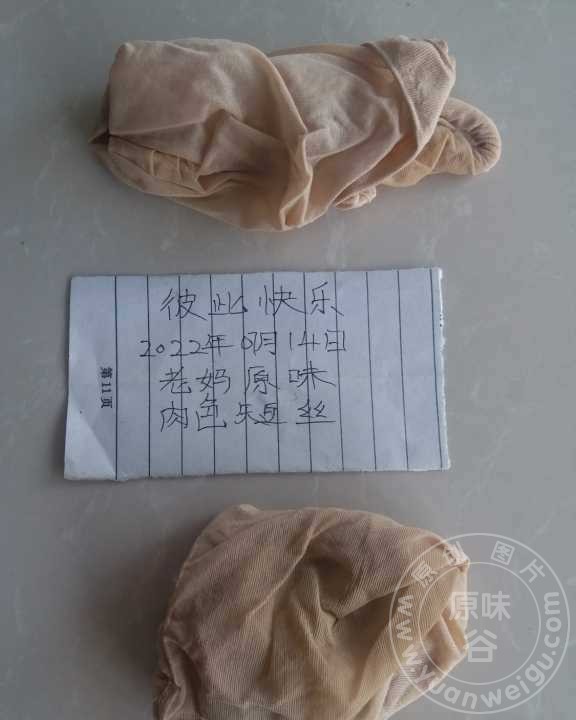 彼此快乐
2022年01月14日
老妈原味
肉色短丝
第11页
原创图片
原味谷
www.yuanweigu.com